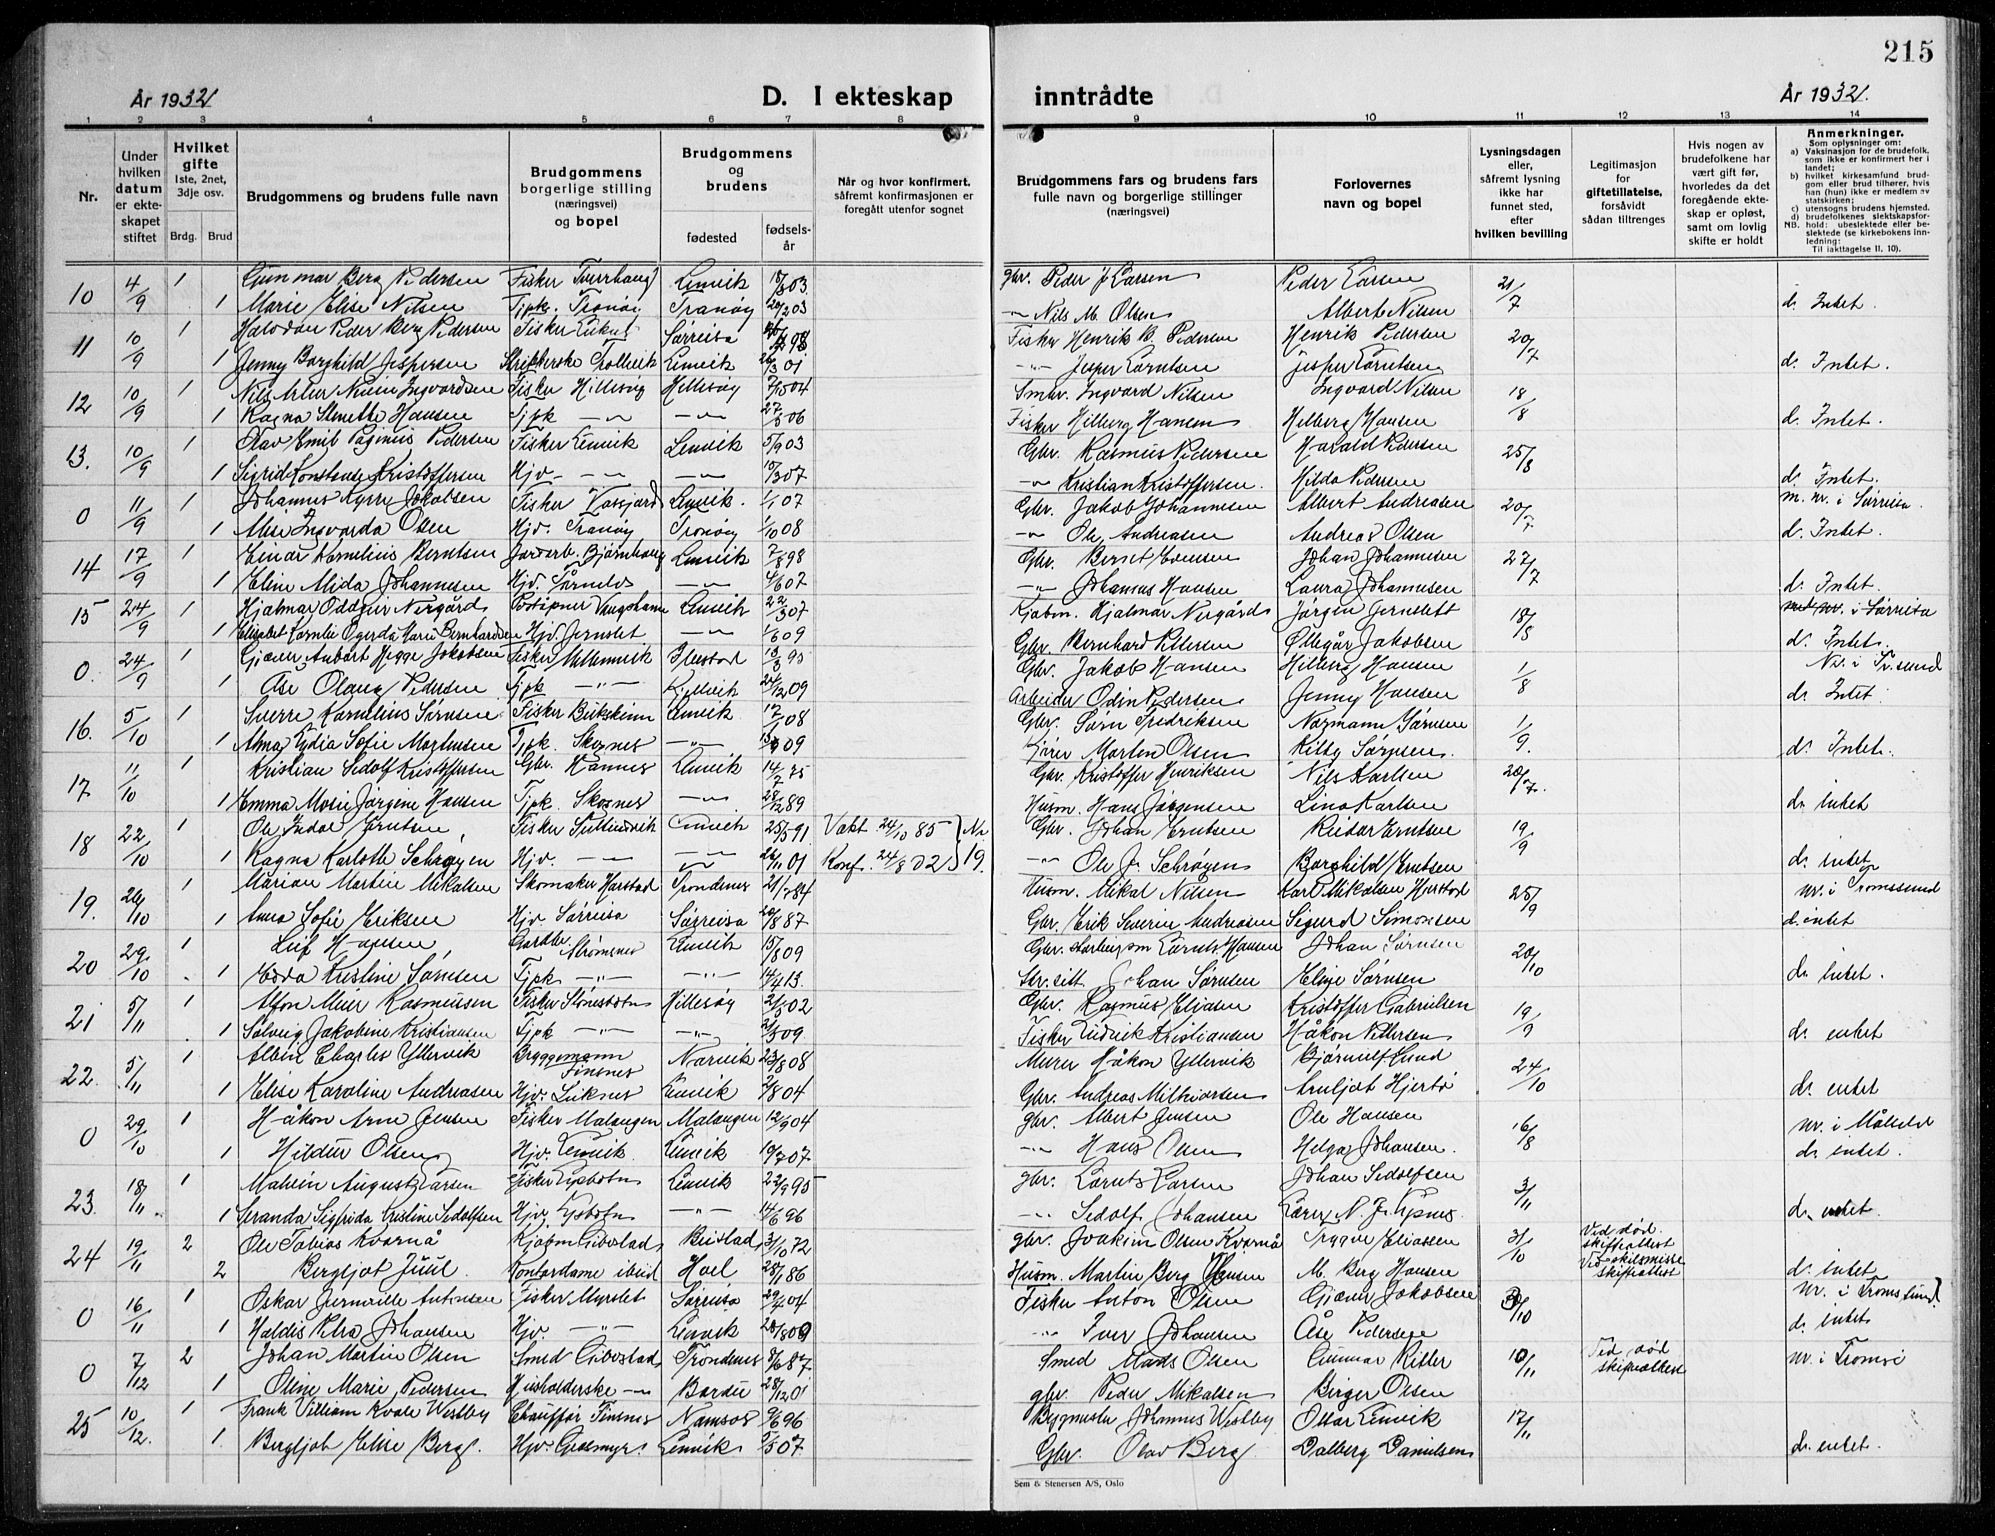 215
År 1932
D. I ekteskap inntrådte
År 1932.
1 2 3 4 5 6 7 8 9 10 11 12 13 14
Nr.
Under hvilken datum er ekteskapet stiftet
Hvilket gifte 1ste, 2net, 3dje osv.
Brdg. Brud
Brudgommens og brudens fulle navn
Brudgommens borgerlige stilling (næringsvei) og bopel
Brudgommens og brudens
fødested
fødselsår
Når og hvor konfirmert, såfremt konfirmasjonen er foregått utenfor sognet
Brudgommens fars og brudens fars fulle navn og borgerlige stillinger (næringsvei)
Forlovernes navn og bopel
Lysningsdagen eller, såfremt lysning ikke har funnet sted, efter hvilken bevilling
Legitimasjon for giftetillatelse, forsåvidt sådan tiltrenges
Hvis nogen av brudefolkene har vært gift før, hvorledes da det foregående ekteskap er opløst, samt om lovlig skifte er holdt
Anmerkninger.
Som oplysninger om:
a) Vaksinasjon for de brudefolk, som ikke er konfirmert her i landet;
b) hvilket kirkesamfund brudgom eller brud tilhører, hvis han (hun) ikke er medlem av statskirken;
c) utensogns brudens hjemsted.
d) brudefolkenes slektskapsforhold: ubeslektede eller beslektede (se kirkebokens innledning:
NB. Til iakttagelse II, 10).
10 4/9 1 Gunnar Berg Pedersen Fisker Lenvik 03 gbr. Peder J. Larsen Peder Larsen 21/7
1 Marie Elise Nilsen Tjpk. Tranøy Tranøy 03 -"- Nils M. Olsen Albert Nilsen d. Intet
11 10/9 1 Halvdan Peder Berg Pedersen Fisker Sørreisa 98 Fisker Henrik B. Pedersen Henrik Pedersen 20/7
1 Jenny Borghild Jespersen Trollvik Lenvik 26/3 01 -"- Jesper Lorntsen Jesper Lorntsen d. Intet.
12 10/9 1 Nils Artur Ingvardsen Fisker Hillesøy Hillesøy 04 Smbr. Ingvard Nilsen Ingvard Nilsen 18/8
1 Ragna Stenette Hansen Tjpk -"- -"- 06 Fisker Hilberg Hansen Hilberg Hansen d. Intet.
13. 10/9 1 Olav Emil Ragnius Pedersen Fisker Lenvik Lenvik 5/9 03 Gbr. Rasmus Pedersen Harald Pedersen 25/8
1 Sigrid Konstanse Kristoffersen Hjv -"- -"- 07 -"- Kristian Kristoffersen. Hilda Pedersen d. Intet
0 11/9 1 Johannes Kyrre Jakobsen Fisker Lenvik. 1/1 07 Gbr. Jakob Johannesen Albert Andreassen 20/7 m. nr. i Sørreisa.
1 Alise Ingvarda Olsen Hjv. Tranøy Tranøy 1/10 08 -"- Ole Andreasen Andreas Olsen d. Intet.
14 17/9 1 Einar Kornelius Berntsen Jordarb. Bjørnhaug Lenvik 7/8 98 Gbr. Bernt Johan Johannesen 27/7
1 Eline Alida Johannesen Hjv. -"- 4/6 07 -"- Johannes Hansen Laura Johannesen d. Intet.
15 24/9 1 Hjalmar Oddgeir Nergård Poståpner Vangshamn Lenvik 22/3 07 Kjøbm. Hjalmar Nergård Jørgen 18/5 nr. i Sørreisa
1 Elisabet Kornelie Ogerda Marie Bernhardsen Hjv. -"- 1/6 09 Gbr. Bernhard Pettersen Ollegår Jakobsen d. Intet.
0. 24/9 1 Gjæver Anbert Jakobsen Fisker 13/3 95 Gbr. Jakob Hansen Hilberg Hansen 1/8 Nr. i Tr.sund
1 Åse Olaug Pedersen Tjpk -"- 24/12 09 Arbeider Odin Pedersen Jenny Hansen d. Intet
16. 5/10 1 Sverre Kornelius Sørnsen Fisker Bukskinn Lenvik 12/1 08 Gbr. Sørn Fredriksen Normann Sørnsen 1/9.
1 Alma Lydia Sofie Mortensen Tjpk. Skognes -"- 09 Morten Olsen Sørnsen. d. Intet.
17 11/10 1 Kristian Sedolf Kristoffersen Gbr. Kannes Lenvik 14/7 75 Gbr. Kristoffer Henriksen Nils Karlsen 20/7.
1 Emma Marie Jørgine Hansen Tjpk. Skognes -"- 28/12 89 Husm. Hans Jørgensen Lina Karlsen d. intet
18 22/10 1 Ole Indal Erntsen Fisker Lenvik 25/5 91 Vakt. 24/10 85 } Nr. Gbr. Johan Erntsen Reidar Erntsen 19/9
1 Ragna Karlotte Schrøyen Hjv. -"- -"- 01 Konf. 24/8 02 } 19. -"- Ole J. Schrøyen Borghild Erntsen d. intet
19. 26/10 1 Marian Martin Mikalsen Skomaker Harstad Trondenes 21/7 84 Husm. Mikal Nilsen Karl Mikalsen Harstad 25/9 nr. i Tromssund
1 Anna Sofie Eriksen Hjv Sørreisa Sørreisa 20/8 87 Gbr. Erik Severin Andreasen Sigurd Simonsen d. intet
20 29/10 1 Leif Hansen Gardbr. Strømsnes Lenvik 15/8 09 Gbr. Lornts Hansen Johan Sørnsen 20/10
1 Edda Kristine Sørnsen Tjpk -"- -"- 14/4 13. Johan Sørnsen Eline Sørnsen d. intet.
21 5/11 1 Alfon Meier Rasmussen Fisker Stønesbotn Hillesøy 2/5 02 Gbr. Rasmus Eliasen Kristoffer Gabrielsen 19/9
1 Solveig Jakobine Kristiansen Tjpk -"- -"- 09 Fisker Ludvik Kristiansen Håkon Pettersen d. intet
22. 5/11 1 Albin Charles Yttervik Bryggemann Finsnes Narvik 23/8 08 Murer Håkon Yttervik Bjørnulf Lund 24/10
1 Elise Karoline Andreasen Hjv. Lenvik 2/8 04 Gbr. Andreas Arnljot Hjertø d. intet
0 29/10 1 Håkon Arne Jensen Fisker Malangen Malangen 12/9 04 gbr. Albert Jensen Ole Hansen 16/8 nr. i Målselv
1 Hildur Olsen Hjv. Lenvik. Lenvik 19/7 07 -"- Hans Olsen Helga Johansen. d. intet.
23. 18/11 1 Malvin August Larsen Fisker Lysbotn Lenvik 22/9 95 gbr. Lornts Larsen Johan Sedolfsen 3/11
1 Seranda Sigfrida Kristine Sedolfsen Hjv. Lysbotn -"- 14/6 96 -"- Sedolf Johansen Lærer N. J. d. intet.
24 19/11 2 Ole Tobias Kvarnå Kjøbm Gibostad Beistad 31/10 72 gbr. Joakim Olsen Kvarnå Trygve Eliassen 31/10 Ved død. skifteattest
2 Bergljot Juul. Kontordame ibid Hoel 28/1 86 Husm. Martin Berg Hansen M. Berg Hansen Ved skilsmisse skifteattest d. intet
0 16/11 1 Oskar Antonsen Fisker Myrslet Sørreisa 29/7 04 Fisker Anton Olsen Gjæver Jakobsen 31/10 nr. i Tromssund.
1 Haldis Petra Johansen Hjv. -"- Lenvik 28/8 09 -"- Iver Johansen Åse Pedersen d. intet
0 7/12 2 Johan Martin Olsen Smed Gibostad Trondenes 8/6 87. Smed Mads Olsen Gunnar Ritter 10/11 Ved død skifteattest nr. i Tromsø
1 Oline Marie Pedersen Husholderske -"- Bardu 28/12 01 gbr. Peder Mikalsen Birger Olsen
25 10/12. 1 Frank Villiam Kvale Westby Chauffør Finsnes Namsos 9/6 96 Bygmester Johannes Westby Ottar Lenvik 17/11
1. Bergljot Elise Berg. Hjv Grasmyr. Lenvik 5/5 07. Gbr. Olav Berg Dalberg Danielsen d. intet.
Sem & Stenersen A/S, Oslo